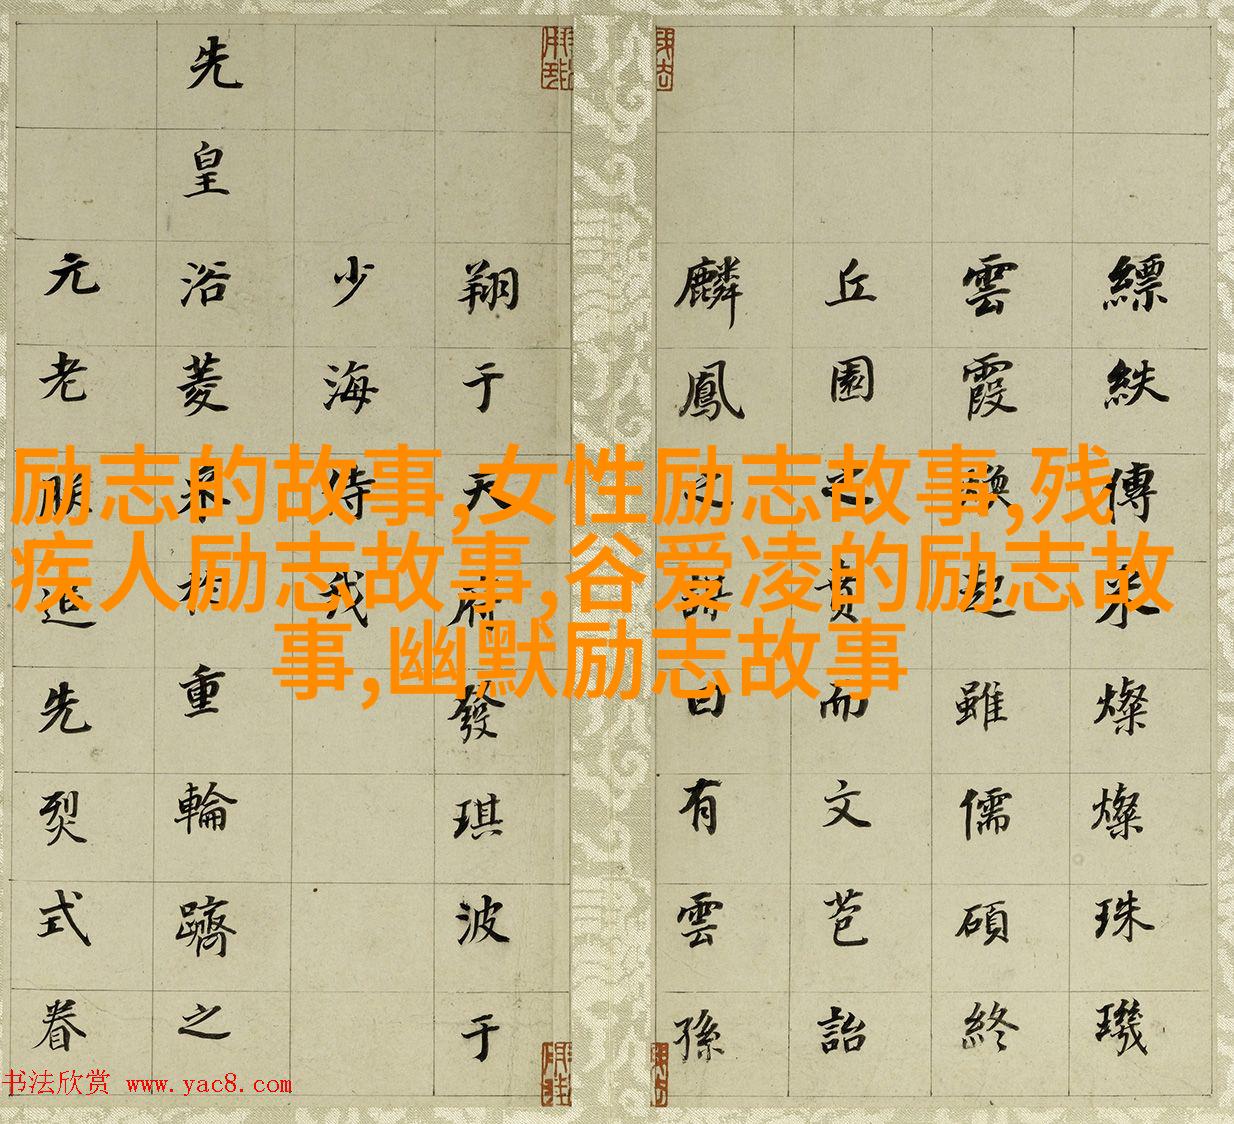 励志的故事,女性励志故事,残
疾人励志故事,谷爱凌的励志故
事,幽默励志故事
縹紩傳來燦燦珠璣
雲霞起雖儒碩終
丘園之賁而文芭詒
麟鳳之有雲孫
翔于天府發琪波于
少海侍我
先皇浴菱重輪躋之
元老先烈式眷
书法欣赏 www.yac8.com